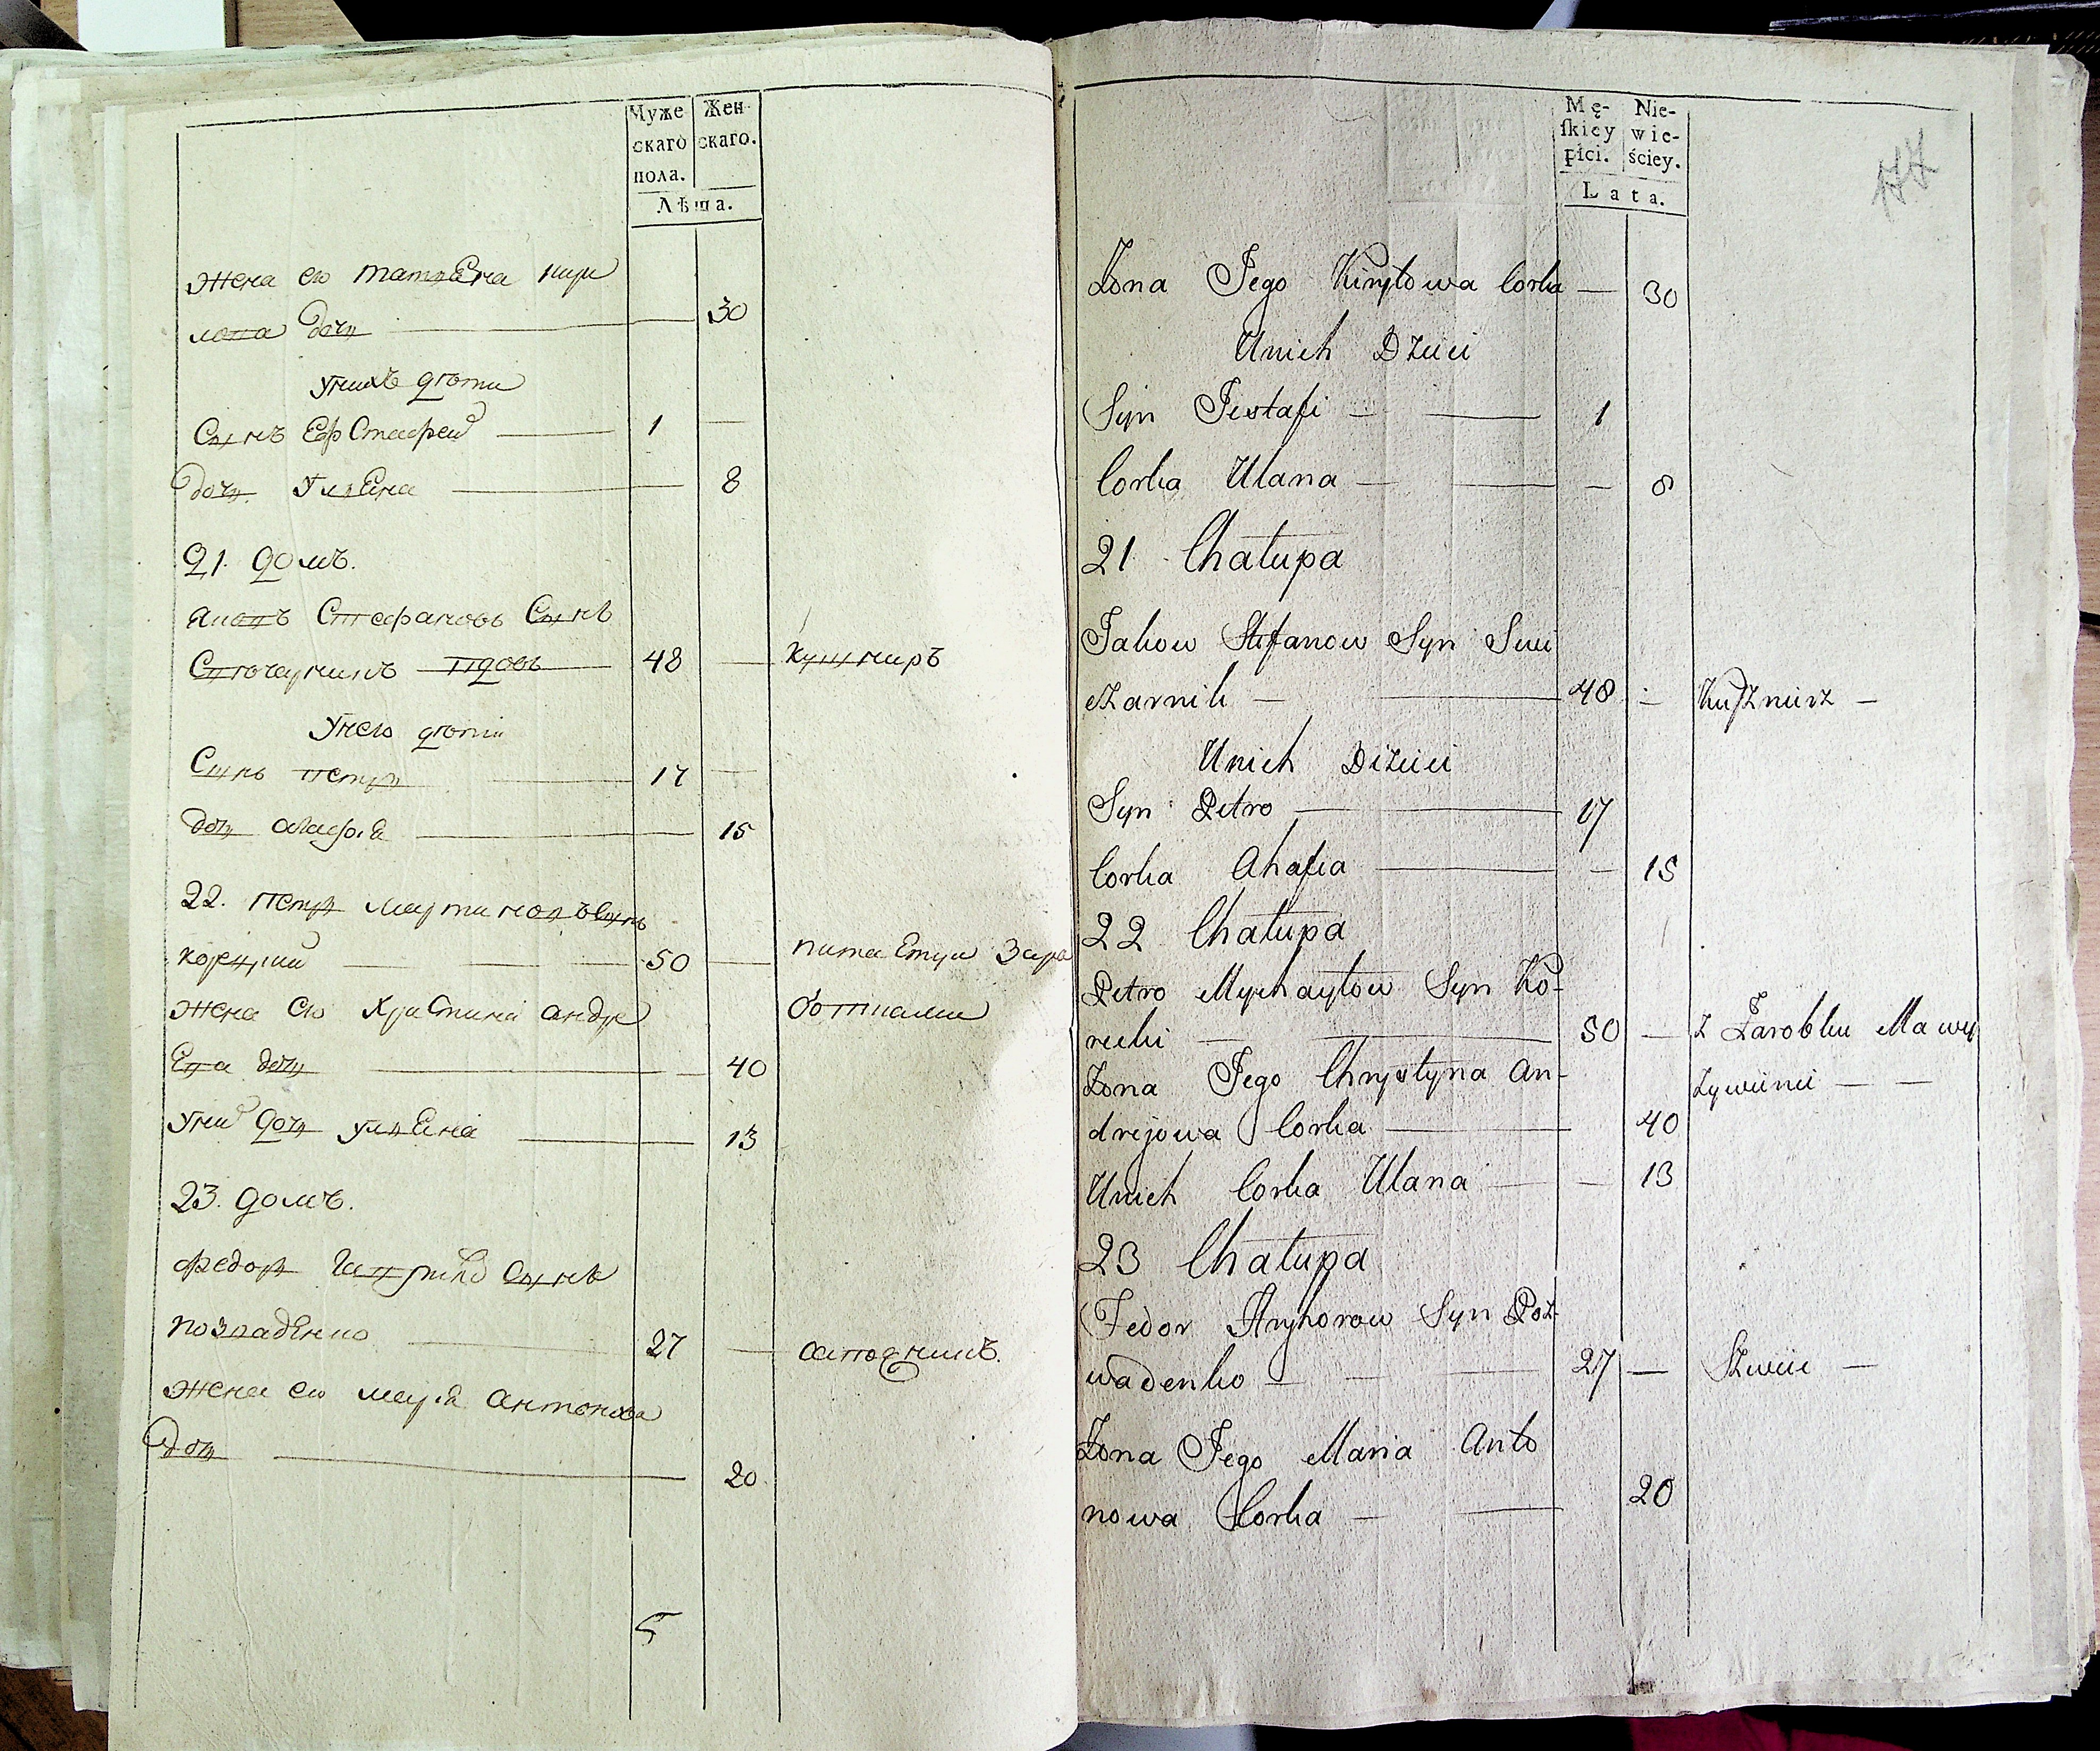 Муже
скаго
пола.
Жен
скаго.
Лѣта.
жена его татиана кири
лова дочь 30
унихъ дѣти
Сынъ Ефстафей 1
дочь Улиана 8
21. домъ.
Яковъ Стефановъ Сынъ
48 кушниръ
унего дѣти
Сынъ петръ 17
дочь агафиа 15
22. петръ Сынъ
корецкий 50 питаетци Зара
жена его Христина андре ботками
ева дочь 40
уних дочь улиана 13
23. домъ.
федоръ Сынъ
позваденко 27 сапожникъ.
жена его мариа антонова
дочь 20
5
Mę-
ſkiey
płci.
Nie-
wie-
ściey.
Lata.
Żona Jego Kiryłowa Corka — 30
Unich Dzieci
Syn Jestafi — 1
Corka Ulana — — 8
21 Chałupa
Jakow Stefanow Syn Swi
eżarnik — 48 — Kuſznierz —
Unich Dzieci
Syn Petro 17
Corka Ahafia — 15
22 Chałupa
Petro Mychayłow Syn Ko-
recki — 50 — Z Zarobku Ma wy
Żona Jego Chrystyna An- żywienie — —
drejowa Corka 40
Unich Corka Ulana — — 13
23 Chałupa
Fedor Hryhorow Syn Poz-
wadenko — — 27 — Szwiec —
Żona Jego Maria Anto
nowa Corka — 20